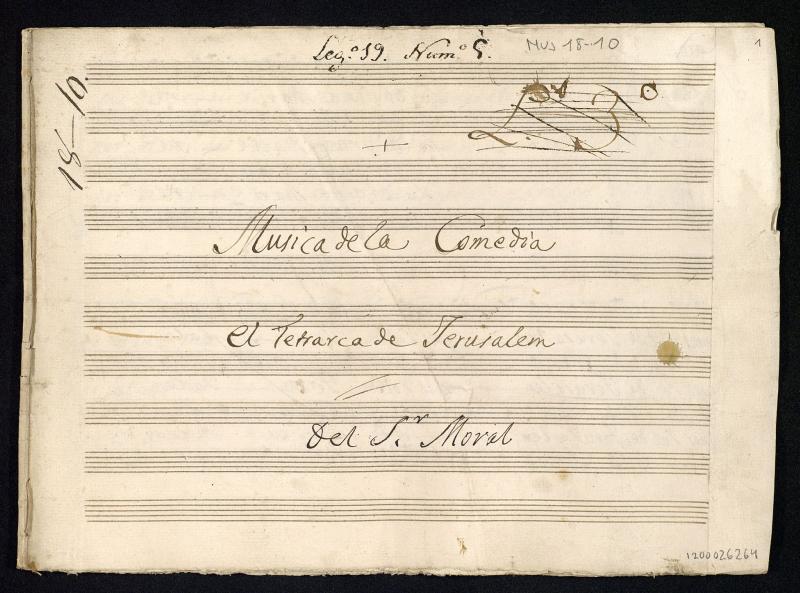 Leg.º 19. Num.º 5.
MUS 18-10
1
18-10.
Musica de la Comedia
el Tetrarca de Jerusalem
Del S.r Moral
1200026264